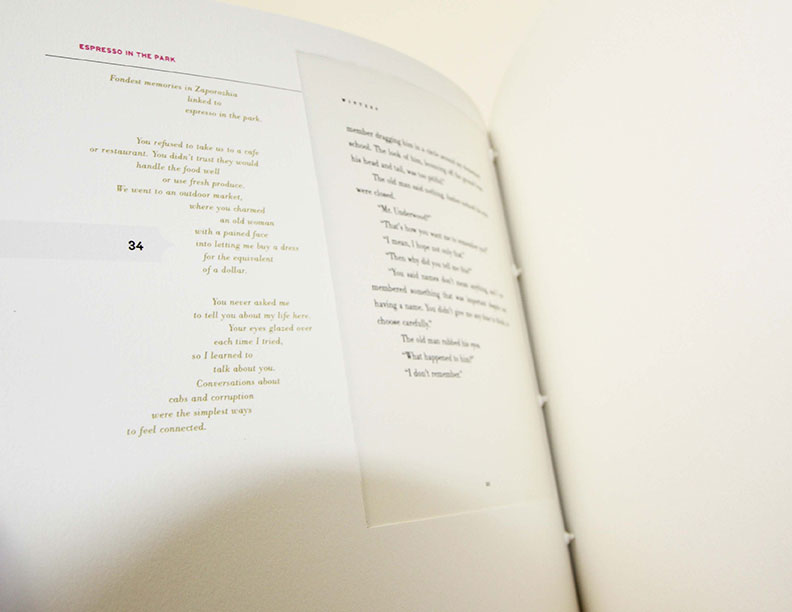 ESPRESSO IN THE PARK
Fondest memories in Zaporozhia
linked to
espresso in the park.
You refused to take us to a cafe
or restaurant. You didn't trust they would
handle the food well
or use fresh produce.
We went to an outdoor market,
where you charmed
an old woman
with a pained face
into letting me buy a dress
for the equivalent
of a dollar.
34
You never asked me
to tell you about my life here.
Your eyes glazed over
each time I tried,
so I learned to
talk about you.
Conversations about
cabs and corruption
were the simplest ways
to feel connected.
member dragging him in a circle around my
school. The look of him, bouncing off the ground
his head and tail, was too pitiful."
The old man said nothing.
were closed.
"Mr. Underwood?"
"That's how you want me to remember you?"
"I mean, I hope not only that."
"Then why did you tell me that?"
"You said names don't mean anything, and I
membered something that was important despite
having a name. You didn't give me any time to think,
choose carefully."
The old man rubbed his eyes.
"What happened to him?"
"I don't remember."